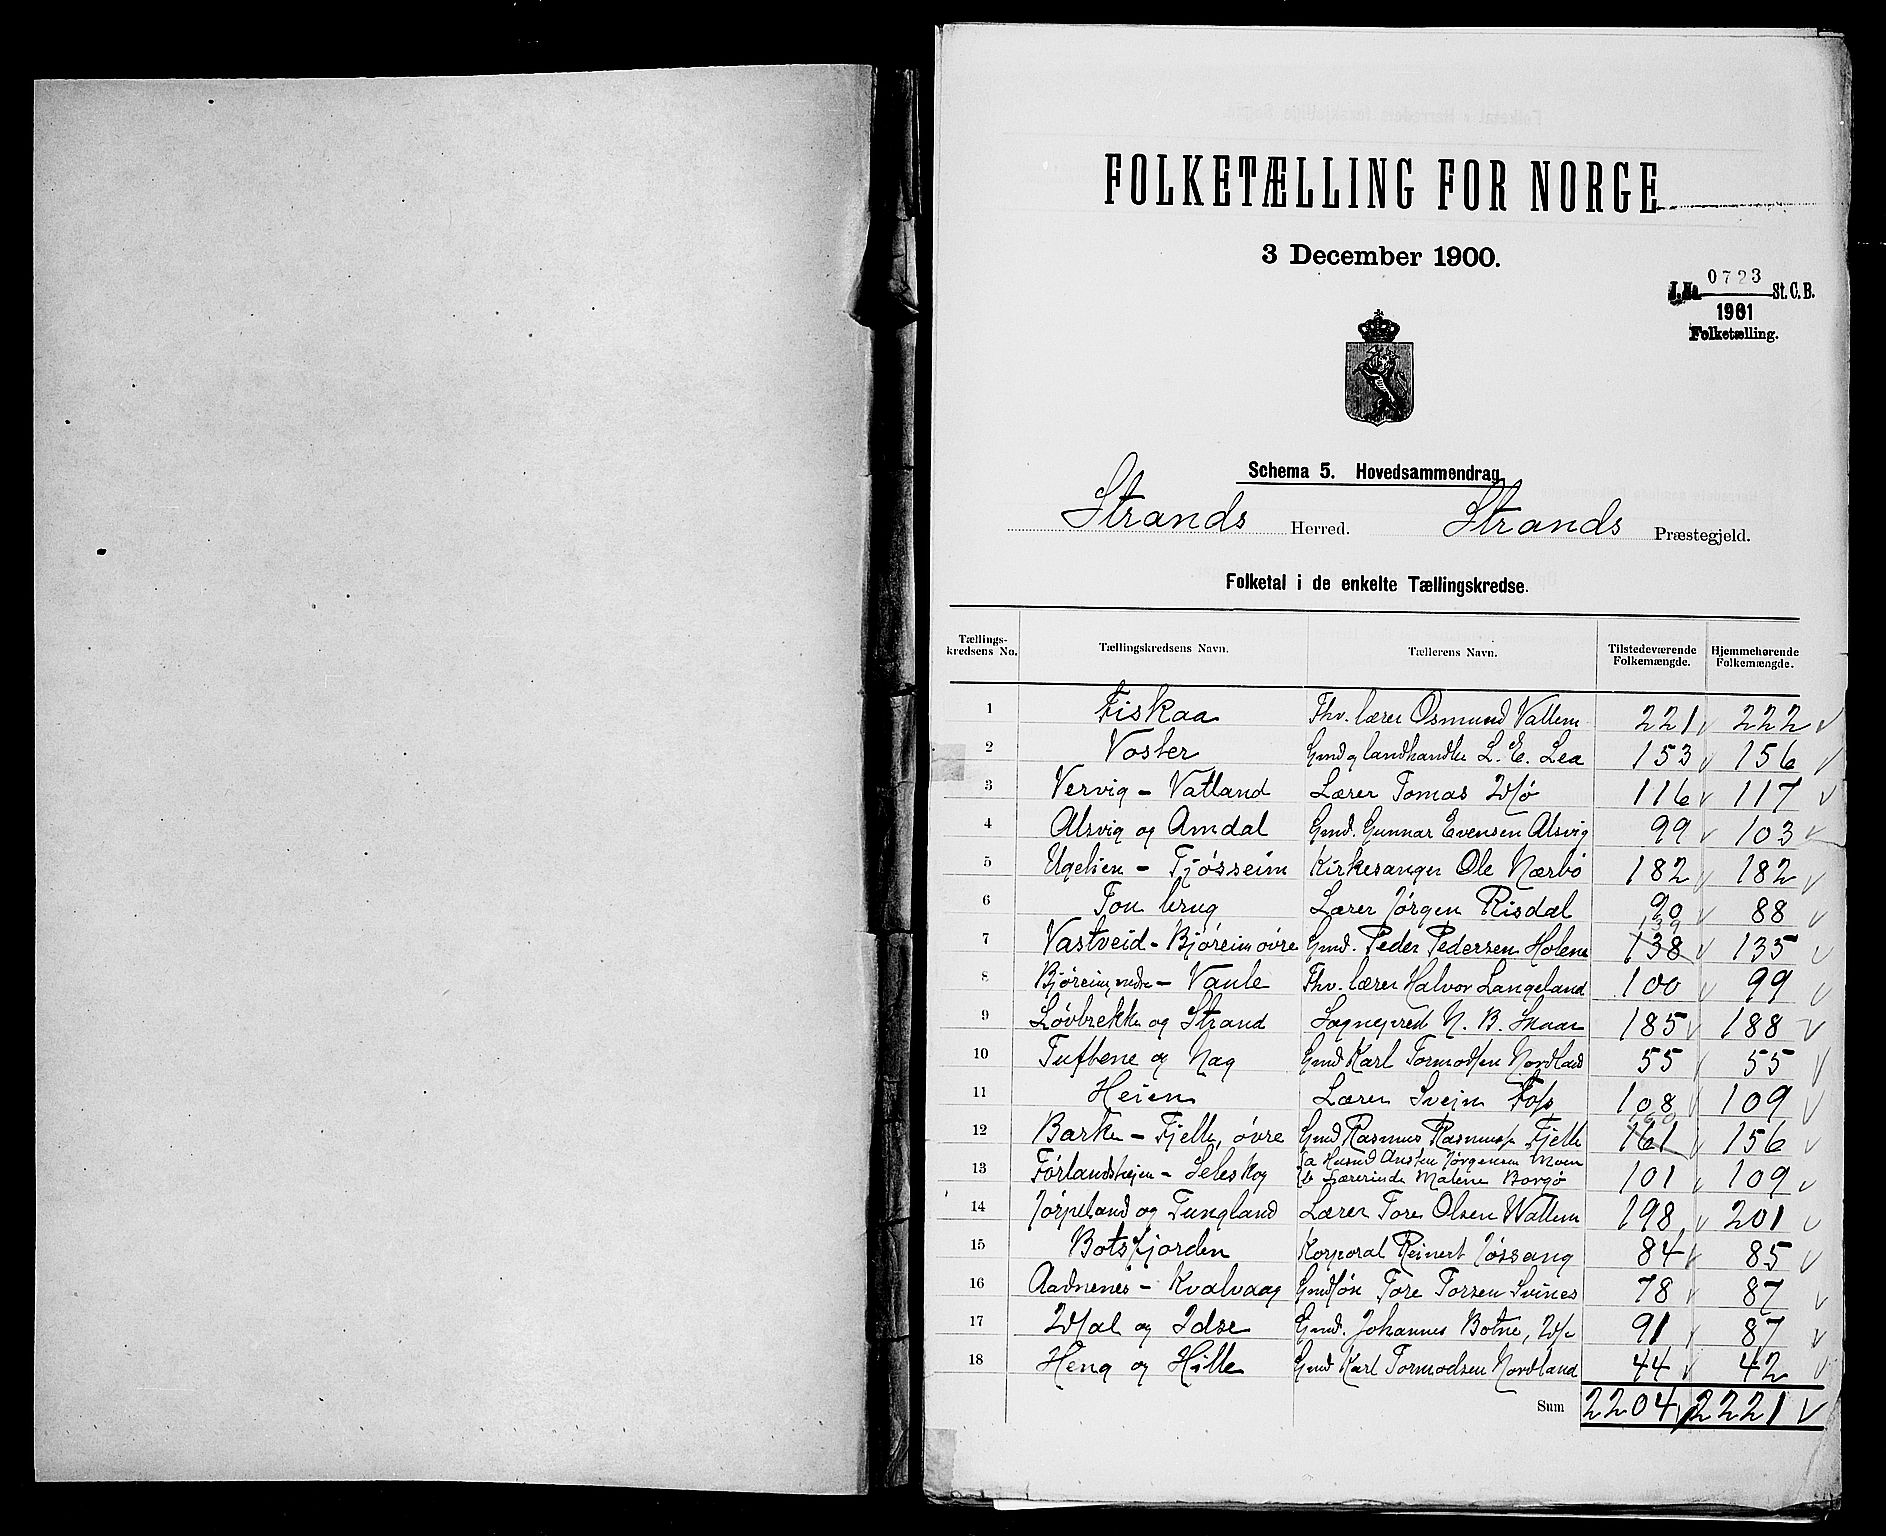 FOLKETÆLLING FOR NORGE
3 December 1900.
J.No. 0723 St. C. B.
1901
Folketælling.
Schema 5. Hovedsammendrag
Strands Herred. Strands Præstegjeld.
Folketal i de enkelte Tællingskredse.
Tællings-kredsens No. Tællingskredsens Navn. Tællerens Navn. Tilstedeværende Folkemængde. Hjemmehørende Folkemængde.
1 Fiskaa Fhv. lærer Osmund Vatlem 221 222
2 Voster Gmd og landhandler L. E. Lea 153 156
3 Vervig - Vatland Lærer Tomas Idsø 116 117
4 Alsvig og Amdal Gmd. Gunnar Evensen Alsvig 99 103
5 Ugelien - Fjøsseim Kirkesanger Ole Nærbø 182 182
6 Tou brug Lærer Jørgen Risdal 90 88
7 Vastveid - Bjøreim øvre Gmd. Peder Pedersen Holene 138 139 135
8 Bjøreim, nedre - Vaule Fhv. lærer Halvor Langeland 100 99
9 Løvbrekke og Strand Sognepræst N. B. Skaar 185 188
10 Tuftene og Nag Gmd Karl Tormodsen Nordland 55 55
11 Heien Lærer Svein Foss 108 109
12 Barke - Fjelle, øvre Gmd Rasmus Rasmuss. Fjelle 161 160 156
13 Førlandsheien - Seleskog a Husmd Austen Jørgensen Moen
b Lærerinde Malene Borgø 101 109
14 Jørpeland og Tungland Lærer Tore Olsen Watlem 198 201
15 Botsfjorden Korporal Reinert Jøssang 84 85
16 Aadnenes - Kvalvaag Gmdsøn Tore Torsen Svines 78 87
17 Idsal og Idse Gmd. Johannes Botne, Idse 91 87
18 Heng og Hille Gmd Karl Tormodsen Nordland 44 42
Sum 2204 2221